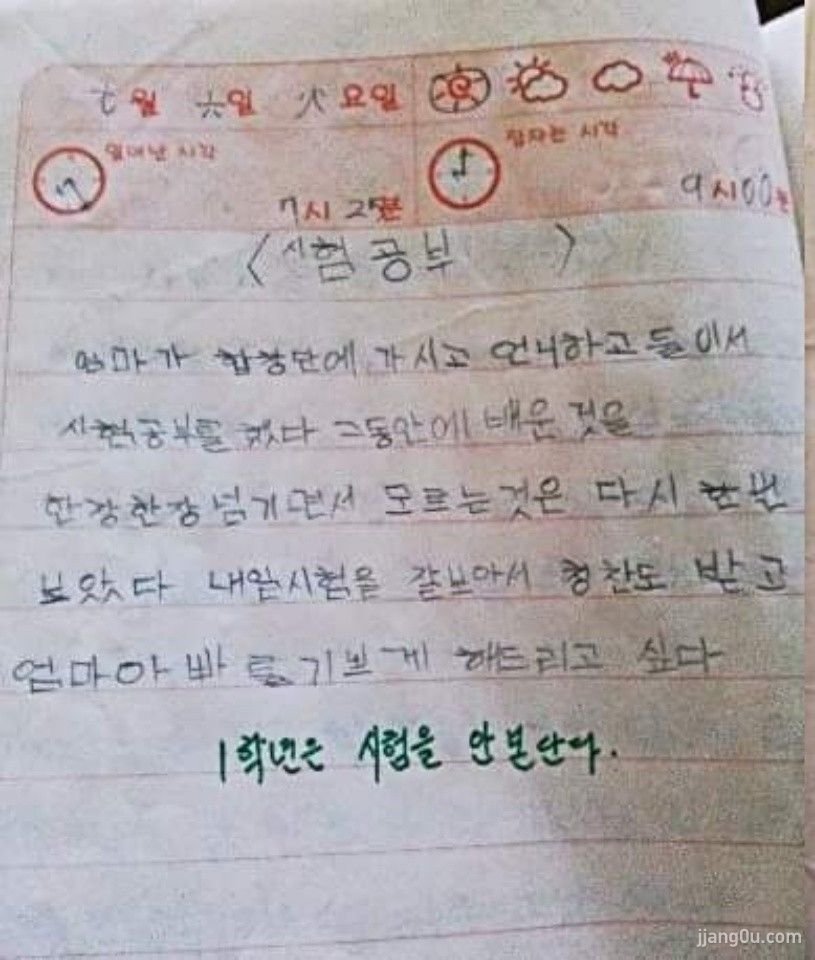 七월 六일 火요일
일어난 시각
잠자는 시각
7시 25분
9시00분
<시험공부>
엄마가 합창단에 가시고 언니하고 둘이서
시험공부를 했다 그동안에 배운 것을
한장한장 넘기면서 모르는것은 다시 한번
보았다 내일시험을 잘보아서 칭찬도 받고
엄마아빠를 기쁘게 해드리고 싶다
1학년은 시험을 안 본단다.
jjang0u.com